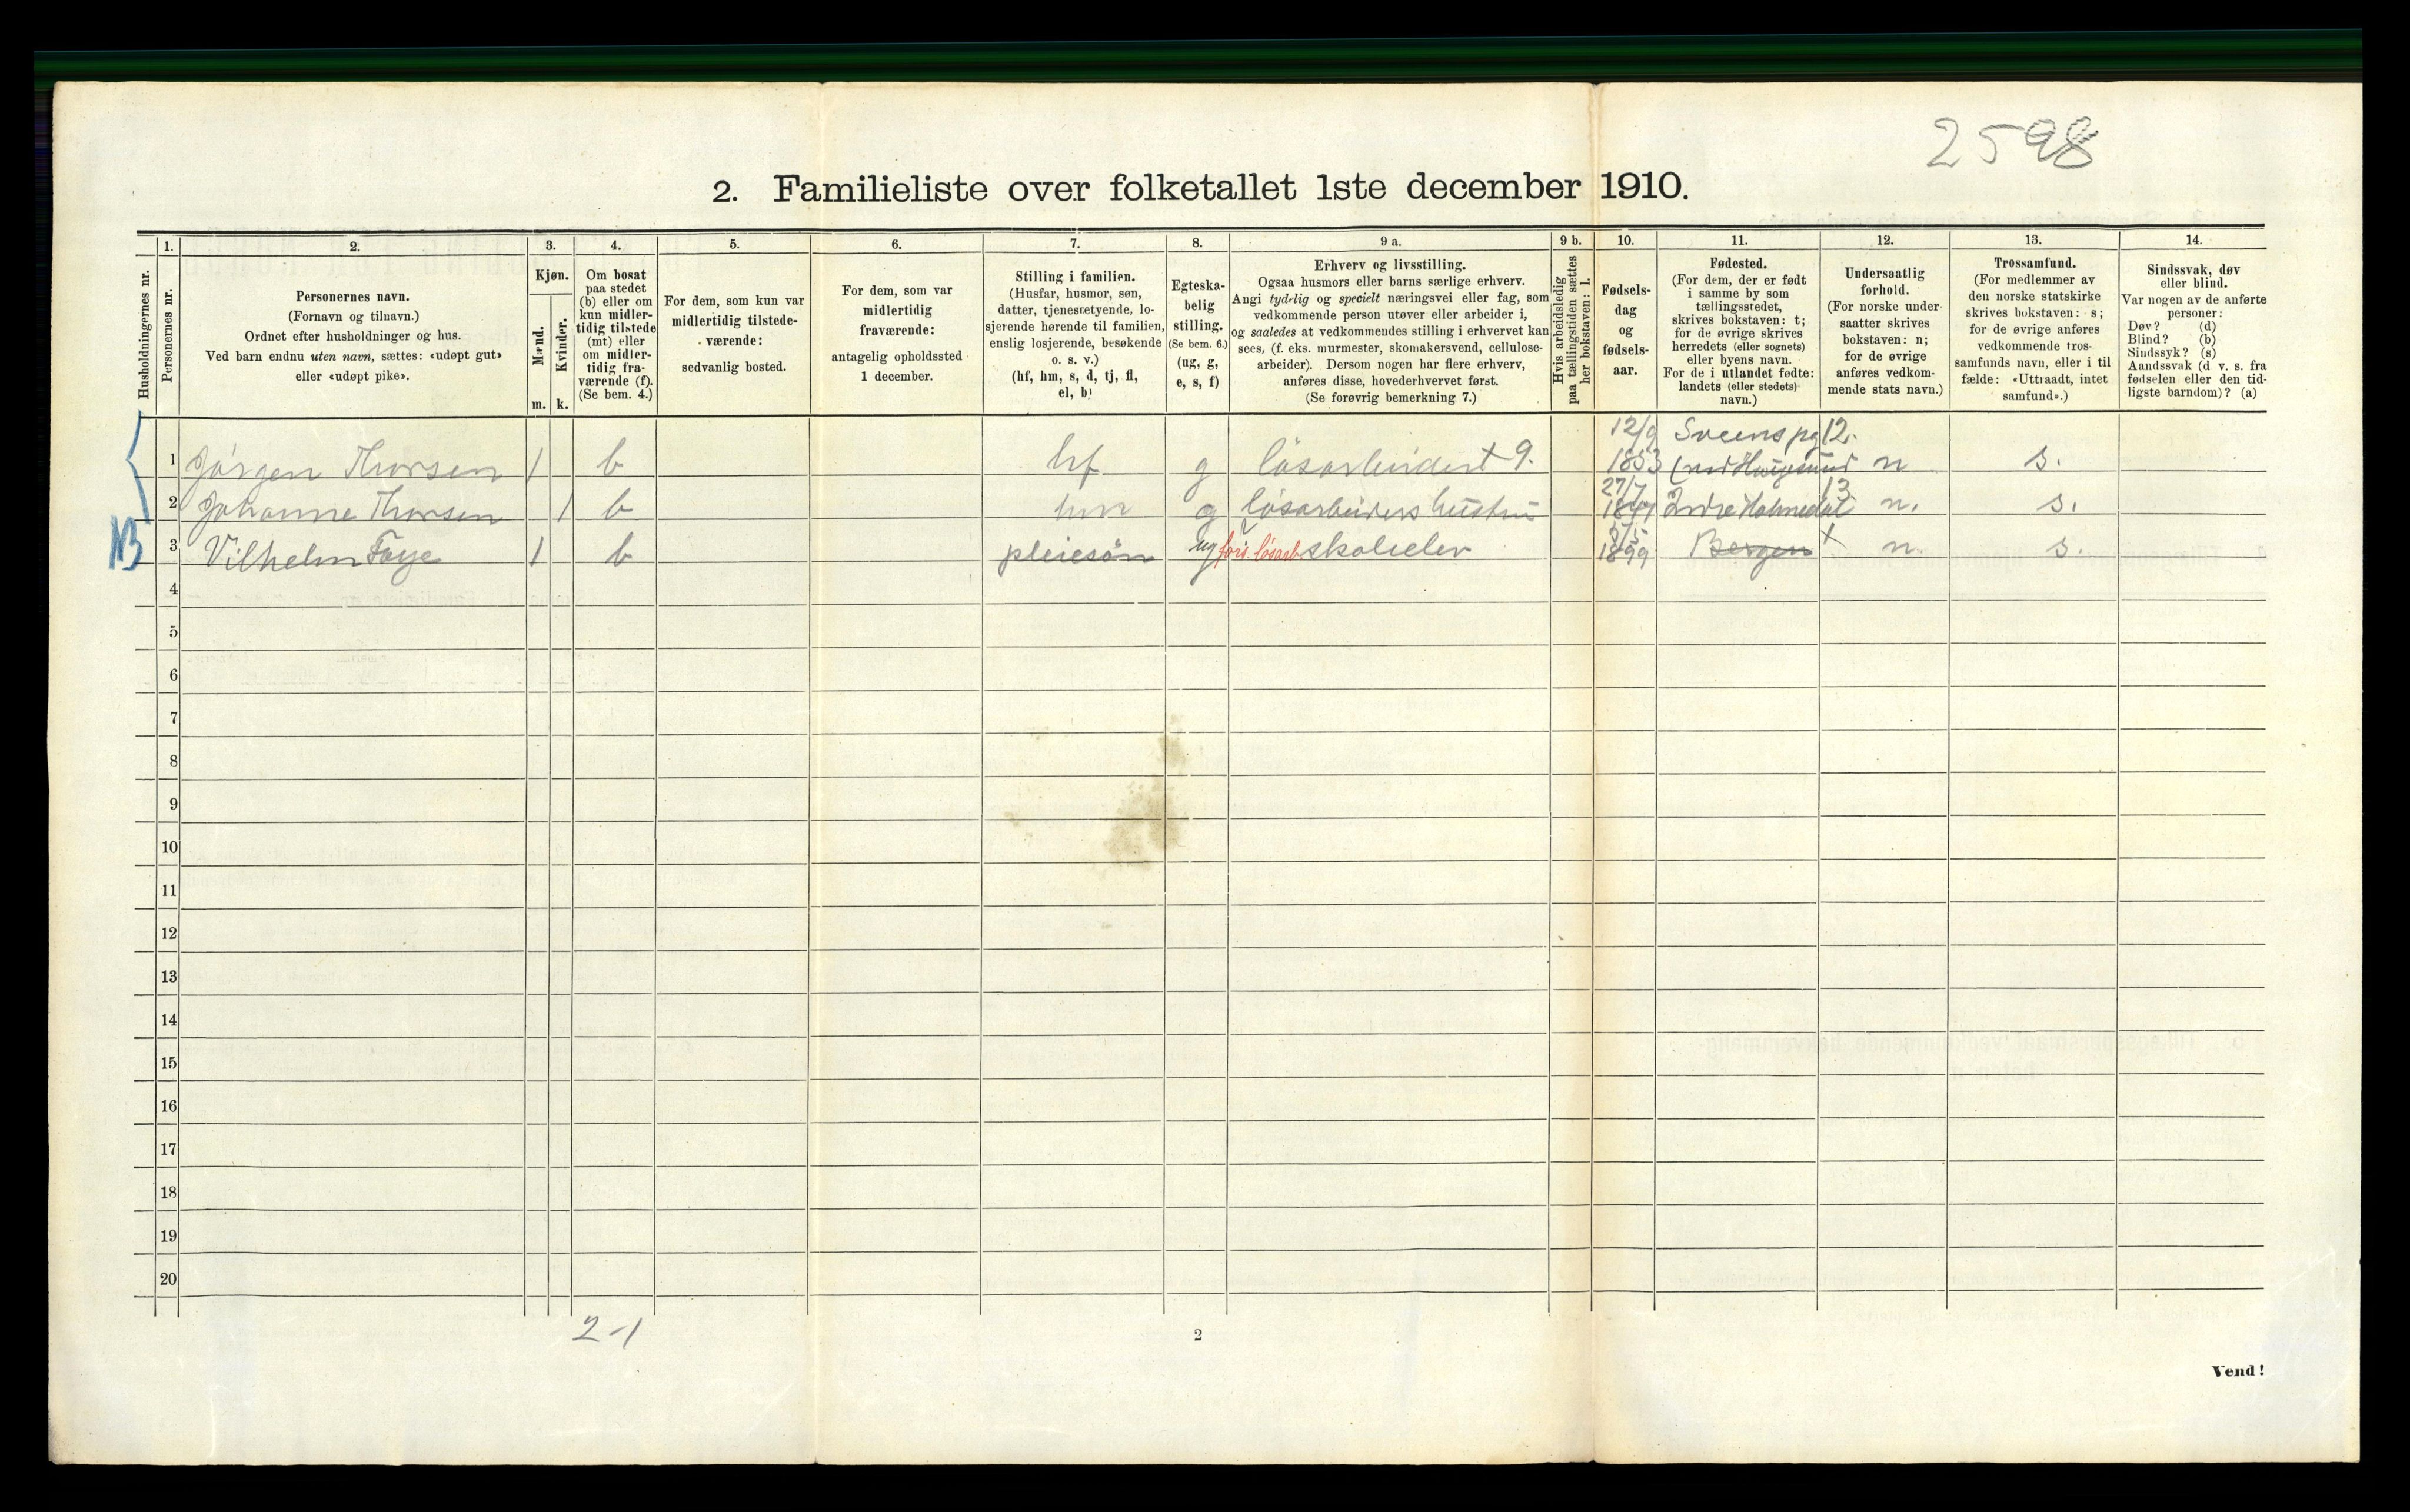 2598
2. Familieliste over folketallet 1ste december 1910.
Husholdningernes nr.
1.
Personernes nr.
2.
Personernes navn.
(Fornavn og tilnavn.)
Ordnet efter husholdninger og hus.
Ved barn endnu uten navn, sættes: «udøpt gut»
eller «udøpt pike».
3.
Kjøn.
Mænd.
Kvinder.
m. k.
4.
Om bosat
paa stedet
(b) eller om
kun midler-
tidig tilstede
(mt) eller
om midler-
tidig fra-
værende (f).
(Se bem. 4.)
5.
For dem, som kun var
midlertidig tilstede-
værende:
sedvanlig bosted.
6.
For dem, som var
midlertidig
fraværende:
antagelig opholdssted
1 december.
7.
Stilling i familien.
(Husfar, husmor, søn,
datter, tjenestetyende, lo-
sjerende hørende til familien,
enslig losjerende, besøkende
o. s. v.)
(hf, hm, s, d, tj, fl,
el, b)
8.
Egteska-
belig
stilling.
(Se bem. 6.)
(ug, g,
e, s, f)
9 a.
Erhverv og livsstilling.
Ogsaa husmors eller barns særlige erhverv.
Angi tydelig og specielt næringsvei eller fag, som
vedkommende person utøver eller arbeider i,
og saaledes at vedkommendes stilling i erhvervet kan
sees, (f. eks. murmester, skomakersvend, cellulose-
arbeider). Dersom nogen har flere erhverv,
anføres disse, hovederhvervet først.
(Se forøvrig bemerkning 7.)
9 b.
Hvis arbeidsledig
paa tællingstiden sættes
her bokstaven: l.
10.
Fødsels-
dag
og
fødsels-
aar.
11.
Fødested.
(For dem, der er født
i samme by som
tællingsstedet,
skrives bokstaven: t;
for de øvrige skrives
herredets (eller sognets)
eller byens navn.
For de i utlandet fødte:
landets (eller stedets)
navn.)
12.
Undersaatlig
forhold.
(For norske under-
saatter skrives
bokstaven: n;
for de øvrige
anføres vedkom-
mende stats navn.)
13.
Trossamfund.
(For medlemmer av
den norske statskirke
skrives bokstaven: s;
for de øvrige anføres
vedkommende tros-
samfunds navn, eller i til-
fælde: «Uttraadt, intet
samfund».)
14.
Sindssvak, døv
eller blind.
Var nogen av de anførte
personer:
Døv? (d)
Blind? (b)
Sindssyk? (s)
Aandssvak (d. v. s. fra
fødselen eller den tid-
ligste barndom)? (a)
1 Jörgen Thorsen 1 b hf g lösarbeider + 9. 12/9 1853 n s.
2 Johanne Thorsen 1 b hm g lösarbeiders hustru 27/7 Indre Holmedal 13 n. s.
NB
3 Vilhelm Faye 1 b pleiesön ug fors. lösarb skoleelev 1899 Bergen t n. s.
4
5
6
7
8
9
10
11
12
13
14
15
16
17
18
19
20
2-1
2
Vend!